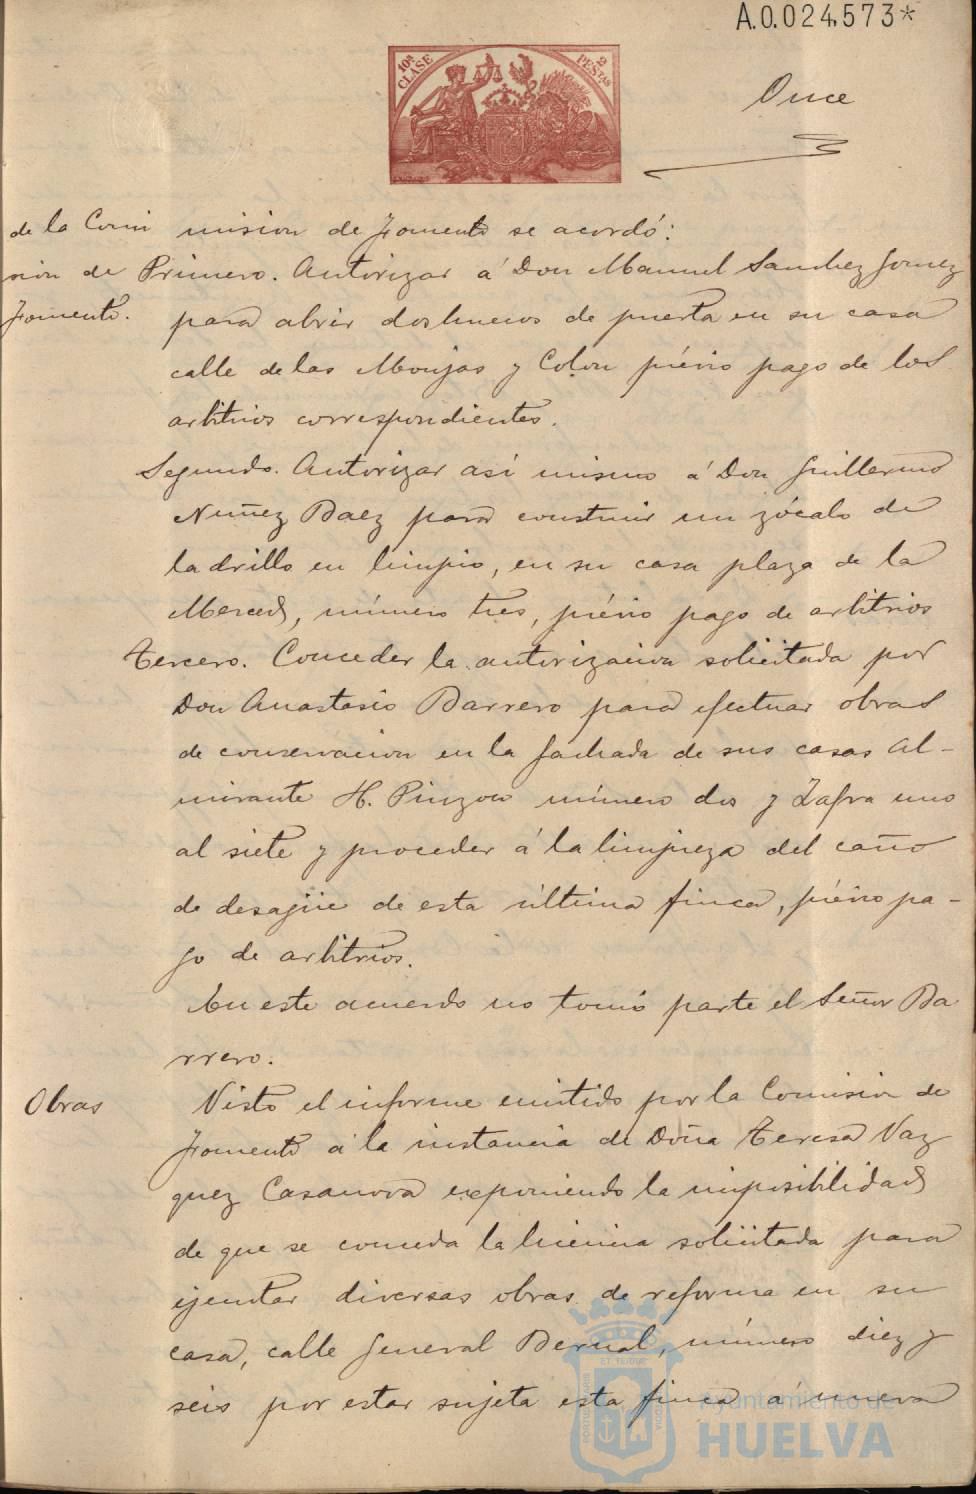 A.0.024.573*
10ª CLASE
2 PESTAS
Once
de la Comi
sión de
Fomento.
mision de Fomento se acordó:
Primero. Autorizar á Don Manuel Sanchez Gomez
para abrir dos huecos de puerta en su casa
calle de las Monjas y Colon prévio pago de los
arbitrios correspondientes.
Segundo. Autorizar asi mismo á Don Guillermo
Nuñez Baez para construir un zócalo de
ladrillo en limpio, en su casa plaza de la
Merced, número tres, prévio pago de arbitrios
Tercero. Conceder la autorizacion solicitada por
Don Anastasio Barrero para efectuar obras
de conservacion en la fachada de sus casas Al-
mirante H. Pinzon número dos y Zafra uno
al siete y proceder á la limpieza del caño
de desagüe de esta última finca, prévio pa-
go de arbitrios.
En este acuerdo no tomó parte el Señor Ba
rrero.
Obras
Visto el informe emitido por la Comision de
Fomento á la instancia de Doña Teresa Vaz
quez Casanova exponiendo la imposibilidad
de que se conceda la licencia solicitada para
ejecutar diversas obras de reforma en su
casa, calle General Bernal, número diez y
seis por estar sujeta esta finca á nueva
Ayuntamiento de
HUELVA